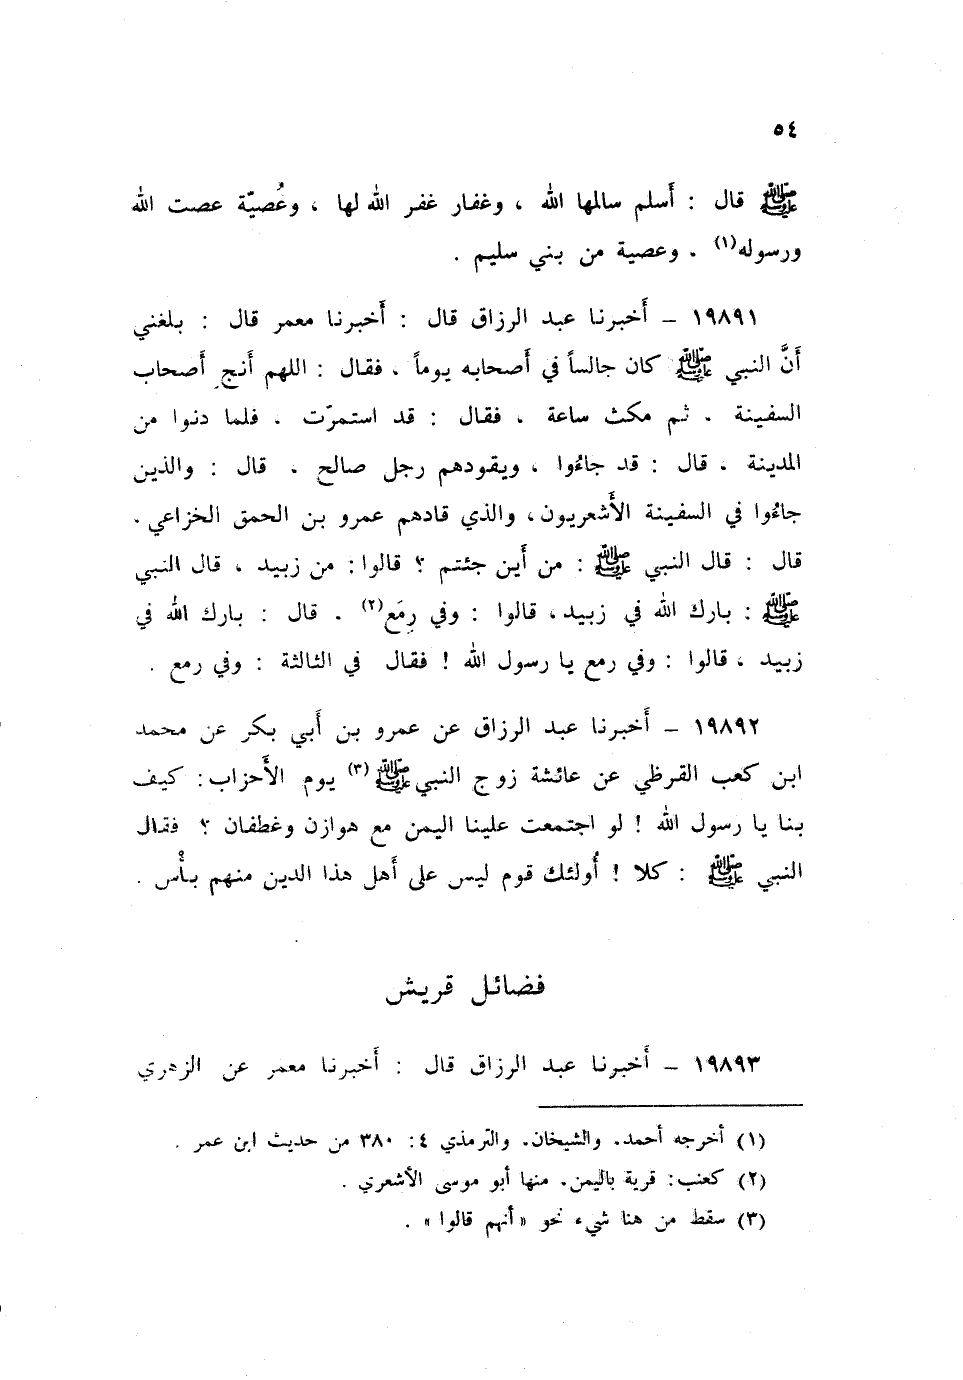 ٥٤
ﷺ قال : أَسلم سالمها الله ، وغفار غفر الله لها ، وعُصيّة عصت الله
ورسوله(١) . وعصية من بني سليم .
١٩٨٩١ – أَخبرنا عبد الرزاق قال : أَخبرنا معمر قال : بلغني
أَنَّ النبي ﷺ كان جالساً في أَصحابه يوماً ، فقال : اللهم أَنجِ أَصحاب
السفينة . ثم مكث ساعة ، فقال : قد استمرّت . فلما دنوا من
المدينة ، قال : قد جاءُوا ، ويقودهم رجل صالح . قال : والذين
جاءُوا في السفينة الأَشعريون، والذي قادهم عمرو بن الحمق الخزاعي .
قال : قال النبي ﷺ : من أَين جئتم ؟ قالوا : من زبيد ، قال النبي
ﷺ : بارك الله في زبيد، قالوا : وفي رِمَع(٢) . قال : بارك الله في
زبيد ، قالوا : وفي رمع يا رسول الله ! فقال في الثالثة : وفي رمع .
١٩٨٩٢ – أَخبرنا عبد الرزاق عن عمرو بن أَبي بكر عن محمد
ابن كعب القرظي عن عائشة زوج النبي ﷺ(٣) يوم الأَحزاب: كيف
بنا يا رسول الله ! لو اجتمعت علينا اليمن مع هوازن وغطفان ؟ فقال
النبي ﷺ : كلا ! أُولئك قوم ليس على أَهل هذا الدين منهم بأْس .
فضائل قريش
١٩٨٩٣ – أَخبرنا عبد الرزاق قال : أَخبرنا معمر عن الزهري
(١) أخرجه أحمد. والشيخان. والترمذي ٤: ٣٨٠ من حديث ابن عمر .
(٢) كعنب: قرية باليمن. منها أبو موسى الأشعري .
(٣) سقط من هنا شيء نحو «أنهم قالوا» .